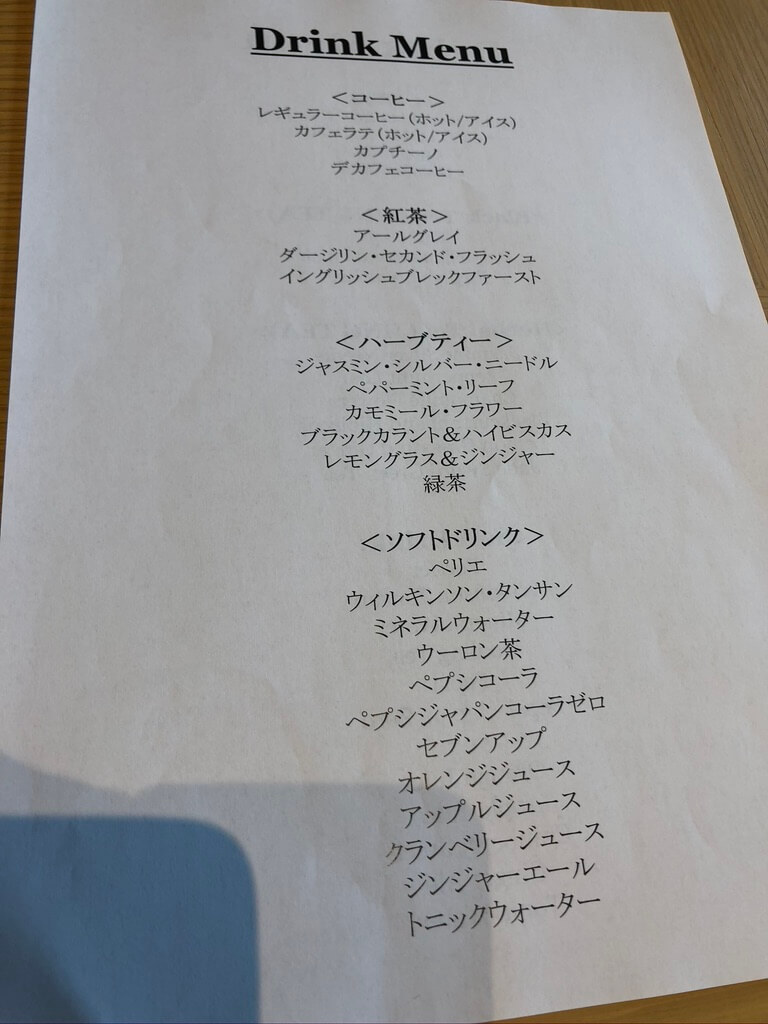 Drink Menu
＜コーヒー＞
レギュラーコーヒー（ホット/アイス）
カフェラテ（ホット/アイス）
カプチーノ
デカフェコーヒー
＜紅茶＞
アールグレイ
ダージリン・セカンド・フラッシュ
イングリッシュブレックファースト
＜ハーブティー＞
ジャスミン・シルバー・ニードル
ペパーミント・リーフ
カモミール・フラワー
ブラックカラント＆ハイビスカス
レモングラス＆ジンジャー
緑茶
＜ソフトドリンク＞
ペリエ
ウィルキンソン・タンサン
ミネラルウォーター
ウーロン茶
ペプシコーラ
ペプシジャパンコーラゼロ
セブンアップ
オレンジジュース
アップルジュース
クランベリージュース
ジンジャーエール
トニックウォーター